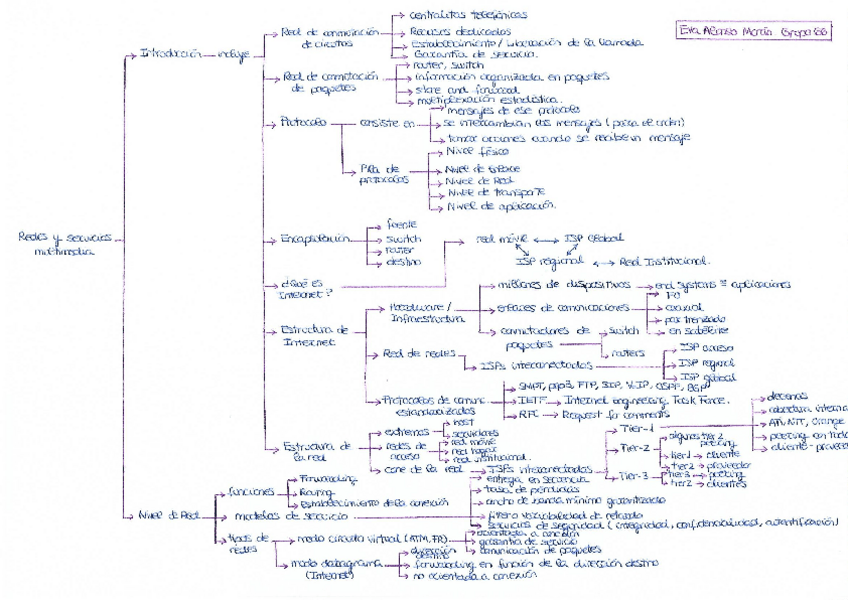 Eva Alonso Martín Grupo 66
Redes y servicios
multimedia
Introducción incluye
Red de conmutación
de circuitos
centralitas telefónicas
Recursos dedicados
Establecimiento / Liberación de la llamada
Garantía de servicio.
Red de conmutación
de paquetes
router, switch
información organizada en paquetes
store and forward
multiplexación estadística.
Protocolo
consiste en
mensajes de ese protocolo
se intercambian los mensajes
tomar acciones cuando se recibe un mensaje
Pila de
protocolos
Nivel físico
Nivel de Enlace
Nivel de Red
Nivel de transporte
Nivel de aplicación.
Encapsulación
fuente
switch
router
destino
¿Qué es
Internet?
red móvil ISP Global
ISP regional Red Institucional.
Estructura de
Internet
Hardware /
Infraestructura
millones de dispositivos end systems aplicaciones
enlaces de comunicaciones
FO
coaxial
par trenzado
satélite
conmutadores de
paquetes
switch
routers
Red de redes
ISPs interconectados
ISP acceso
ISP regional
ISP global
Protocolos de comunic
estandarizados
SMPT, pop3, FTP, SIP, OSPF, BGP
IETF Internet engineering Task Force.
RFC Request for comments
Estructura de
la red
extremos
host
servidores
redes de
acceso
red móvil
red hogar
red institucional.
core de la red
ISPs interconectados
Tier-1
decenas
cobertura interna
AT&T, Orange
peering en todo
cliente-provee
Tier-2
peering
tier1 cliente
tier2 proveedor
Tier-3
tier3 peering
tier2 clientes
Nivel de Red
funciones
Forwarding
Routing
Establecimiento de la conexión
modelos de servicio
entrega en secuencia
tasa de pérdidas
ancho de banda mínimo garantizado
variabilidad de retardo
servicios de seguridad (integridad, confidencialidad, autentificación)
tipos de
redes
modo circuito virtual (ATM, FR)
orientada a conexión
garantía de servicio
conmutación de paquetes
modo datagrama
(Internet)
dirección
destino
forwarding en función de la dirección destino
no orientada a conexión